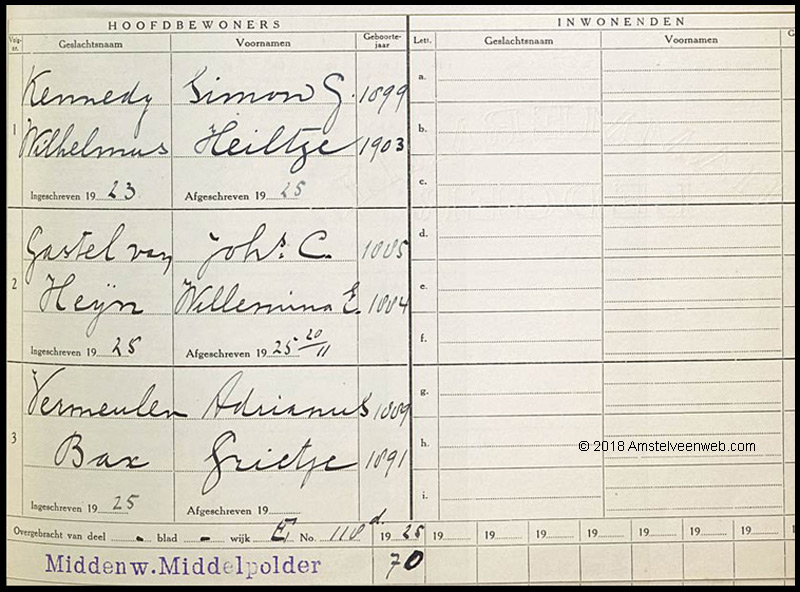 HOOFDBEWONERS INWONENDEN
Volg-nr. Geslachtsnaam Voornamen Geboorte-jaar Lett. Geslachtsnaam Voornamen G
1 Kennedy Simon G. 1899 a.
Wilhelmus Heiltze 1903 b.
Ingeschreven 19 23 Afgeschreven 19 25 c.
2 Gastel van Johs. C. 1885 d.
Heijn Willemina E. 1884 e.
Ingeschreven 19 25 Afgeschreven 19 25 20/11 f.
3 Vermeulen Adrianus 1889 g.
Bax Grietje 1891 h.
© 2018 Amstelveenweb.com
Ingeschreven 19 25 Afgeschreven 19 i.
Overgebracht van deel - blad - wijk E No. 118 d. 19 25 19 19 19 19 19 19 19
Middenw. Middelpolder 70